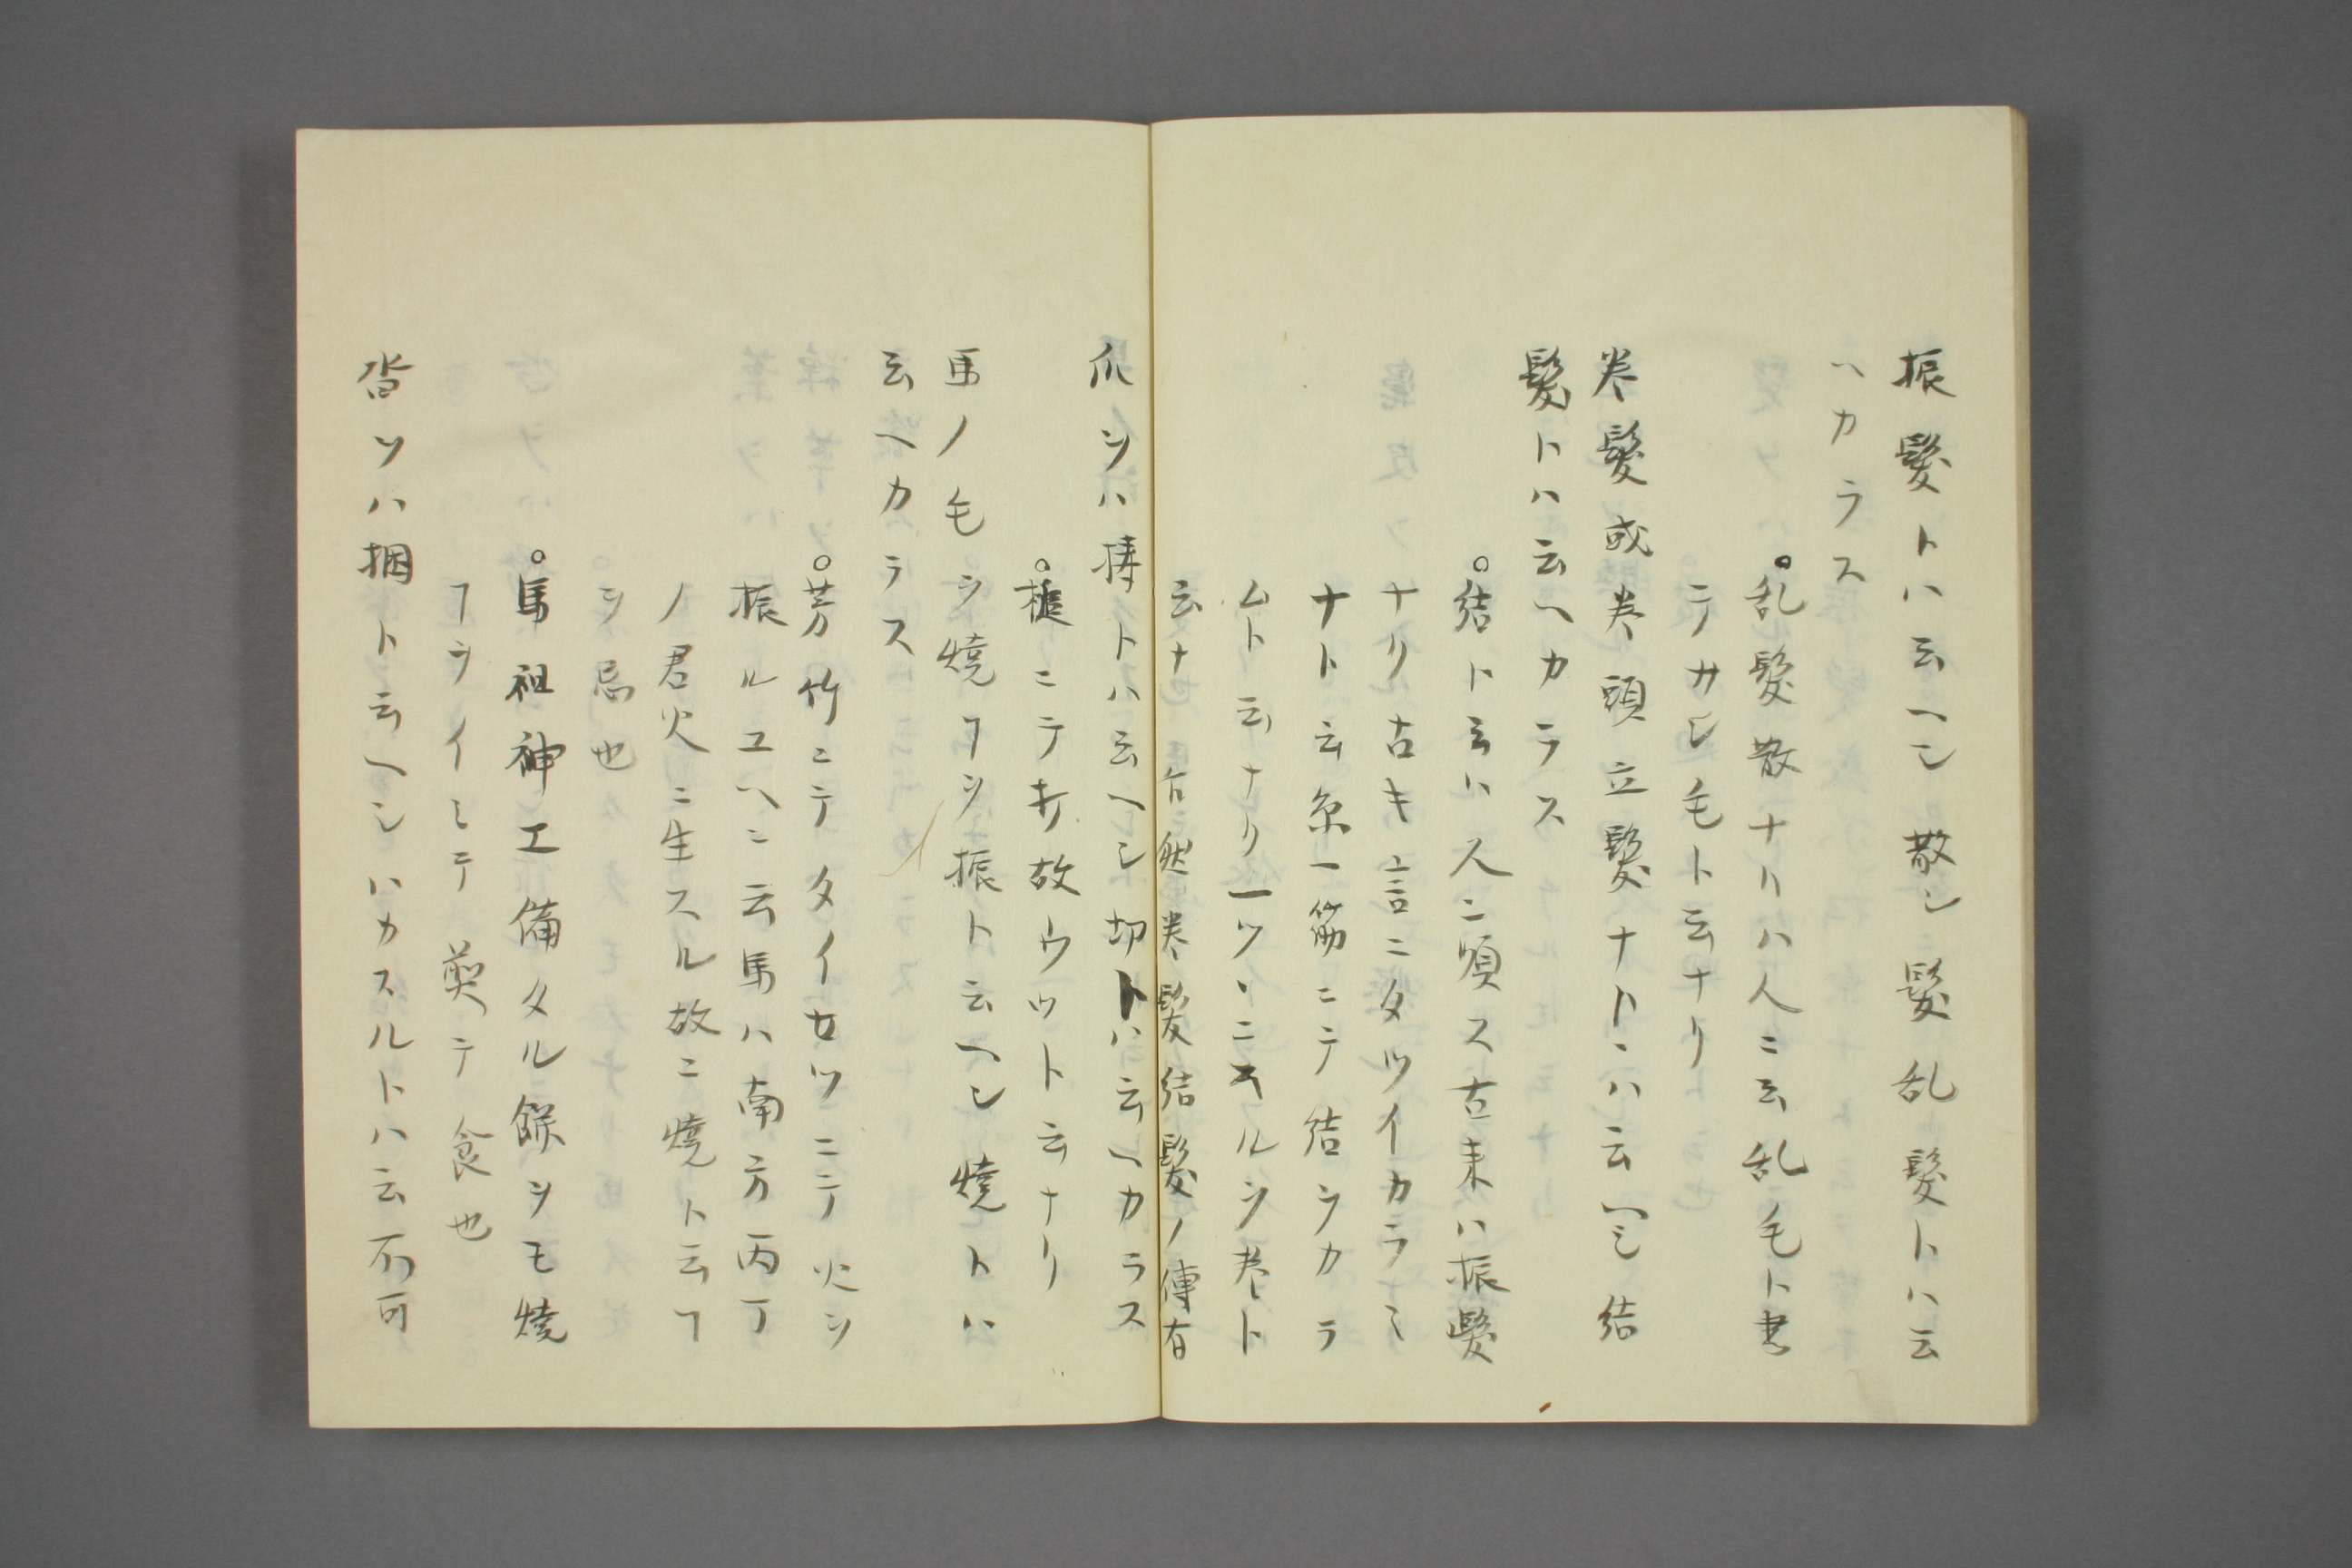 振髮トハ云ヘシ散シ髮乱髮トハ云
ヘカラス
。乱髮散ナリハ人ニ云乱毛ト書
テカシ毛ト云ナリ
巻髮或巻頭立髮ナトヽハ云ヘシ結
髮トハ云ヘカラス
。結ト云ハ人ニ順ス古来ハ振髮
ナリ古キ言ニタツイカラミ
ナト云糸一筋ニテ結シカラ
ムト云ナリ一ツヽニキルヲ巻ト
云ナ 右然巻髮結髮ノ傳有
爪ヲハ槫トハ云ヘシ切トハ云ヘカラス
。槌ニテ打故ウツト云ナリ
馬ノ毛ヲ焼フヲ振ト云ヘシ焼トハ
云ヘカラス
。芳竹ニテタイセツニテ火ヲ
振ルユヘニ云馬ハ南方丙丁
ノ君火ニ生スル故ニ焼ト云フ
ヲ忌也
。馬祖神エ備タル餅ヲモ焼
フヲイミテ煎テ食也
沓ヲハ捆ト云ヘシハカスルトハ云不可